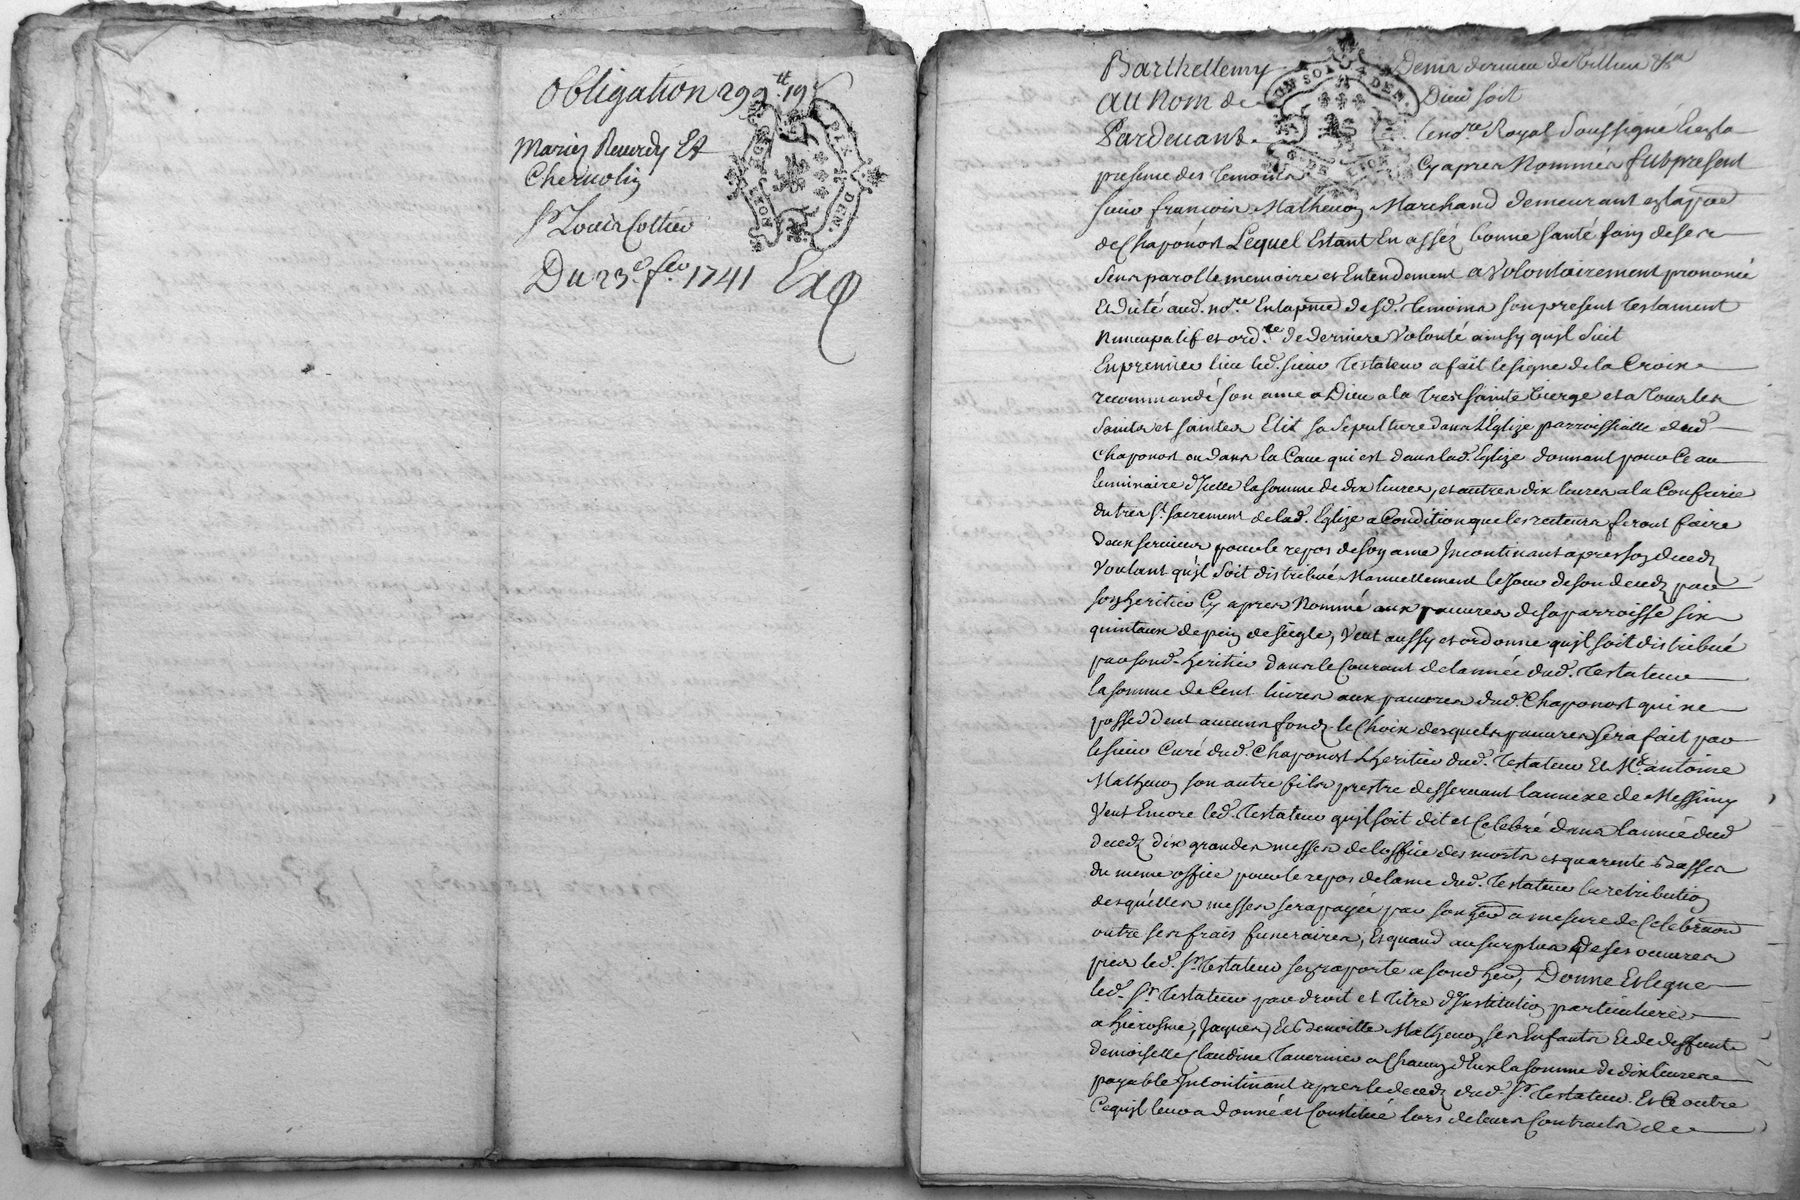 Obligation 299 ₶ 19 s
Mariez Reverdy Et
Chervolin
Sr. Louis Cottier
Du 23e fev. 1741 Exp
GEN. DE LYON
DEN.
Barthellemy Denis dernier de
au Nom de Dieu soit
Pardevant le nore. Royal soussigné Et en la
presence des temoins Cy apres Nommés fut present
sieur françois Mathevon Marchand demeurant en la parr
de Chaponost Lequel Estant En assez bonne santé sain de ses
sens parolle memoire et Entendement a volontairement prononcé
Et dicté aud. nore. En la pnce desd. temoins son present testament
Nuncupatif et ordre. de derniere volonté ainsy qu'il suit
En premier lieu led. sieur Testateur a fait le signe de la Croix
recommandé son ame a Dieu a la Tres sainte vierge et a tous les
saints et saintes Elit sa sepulture dans L'Eglize parroissialle dud
Chaponost ou dans la Cave qui est dans lad. Eglize donnant pour Ce au
luminaire d'Icelle la somme de dix livres, et autres dix livres a la Confrerie
du tres St. sacrement de lad. Eglize a Condition que les recteurs feront faire
deux services pour le repos de son ame Incontinant apres son deced
Voulant qu'il soit distribué Manuellement le Jour de son deced par
son heritier Cy apres Nommé aux pauvres de sa parroisse six
quintaux de pain de seigle, Veut aussy et ordonne qu'il soit distribué
par sond. heritier dans le Courant de l'année dud. Testateur
la somme de Cent livres aux pauvres dud. Chaponost qui ne
posseddent aucuns fonds le Choix desquels pauvres sera fait par
le sieur Curé dud. Chaponost L'heritier dud. Testateur Et Me. antoine
Mathevon son autre fils prestre desservant l'annexe de Messimy
Veut Encore led. Testateur qu'il soit dit et Celebré dans l'année dud
deced dix grandes messes de l'office des morts et quarente Basses
du meme office pour le repos de l'ame dud. Testateur la retribution
desquelles messes sera payée par son hed a mesure de Celebraon
outre ses frais funeraires, Et quand au surplus de ses oeuvres
pies led. Sr. Testateur s'en raporte a sond hed, Donne Et legue
led. Sr. Testateur par droit et titre d'Institution particuliere
a hierosme, Jaques, Et Benoitte Mathevon ses Enfants Et de deffunte
demoiselle Claudine Tavernier a Chacun d'Eux la somme de dix livres
payable Incontinant apres le deced dud. Sr. Testateur. Et Ce outre
Ce qu'il leur a donné et Constitué lors de leurs Contracts de